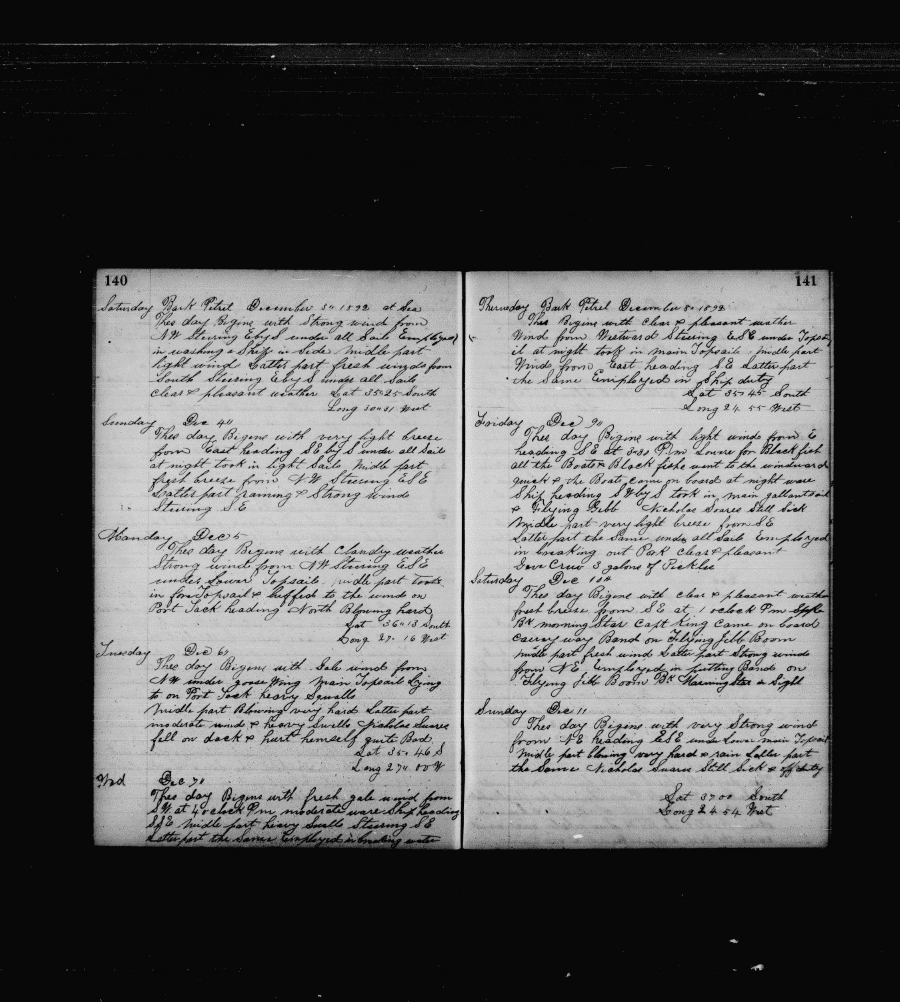 140
Saturday Bark Petrel December 3d 1892 at Sea
Thes day Bigins with Strong wind from
NW Steering EbyS under all Sails Employed
in washing Ship in Side Middle part
light wind Latter part fresh winds from
South Steering EbyS under all Sails
clear & pleasant weather Lat 35=25 South
Long 30=31 West
Sunday Dec 4th
Thes day Bigins with very light breese
from East heading SE by S under all Sail
at night took in light Sails Midle part
fresh breese from NW Steering ESE
Latter part raining & Strong wind
Steering SE
Manday Dec 5
Thes day Bigins with Claudy weather
Strong wind from NW Steering ESE
under Lower Topsails, midle part took
in fore Topsail & luffed to the wind on
Port Tack heading North Blowing hard
Lat 36=13 South
Long 27=16 West
Tuesday Dec 6th
Thes day Bigins with Gale wind from
NW under goose Wing Main Topsail Lying
to on Port Tack heavy Squalls
Midle part Blowing very hard Latter part
moderate wind & heavy Swells Nicholas Suares
fell on deck & hurt hemself quite Bad
Lat 35=46 S
Long 27=00 W
Wed Dec 7th
Thes day Bigins with fresh gale wind from
SW at 4 oclock P.m moderate ware Ship heading
Midle part heavy Swells Steering SE
Latter part the Same Employed in breaking water
141
Thursday Bark Petrel December 8th 1892
Thes Bigins with clear & pleasant wether
Wind from Westward Steering ESE under Topsail
at night took in main Topsails Middle part
Wind from East heading SE Latter part
the Same Employed in Ship duty
Lat 35=45 South
Long 24 55 West
Friday Dec 9th
Thes day Bigins with light winds from E
heading SE at 3=30 P.m Lower for Black fish
all the Boats Black fishe went to the windward
quick & the Boats came on board at night ware
Ship heading SWbyS took in main gallantsail
& Flying Gibb Nicholas Soares Still Sick
Midle part very light breese from SE
Latter part the Same under all Sails Employed
in breaking out Pork clear & pleasant
Gave Crew 3 galons of Pickles
Saturday Dec 10th
Thes day Bigins with clear & pleasant weather
fresh breese from SE at 1 oclock P.m
Bk Morning Star Capt King Came on board
Carrey way Band on Flying Jibb Boom
Midle part fresh wind Latter part Strong winds
from NE Employed in putting Bands on
Flying Jibb Boom Bk Morning Star in Sight
Sunday Dec 11
Thes day Bigins with very Strong wind
from NE heading ESE under Lower main Topsail
Midle part blowing very hard & rain Latter part
the Same Nicholas Suares Still Sick & off duty
Lat 37 00 South
Long 24 54 West